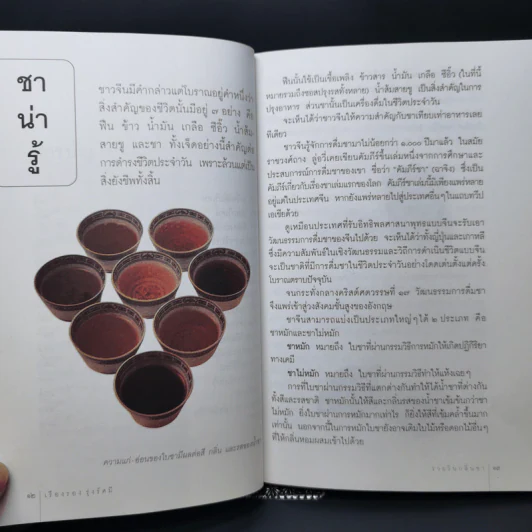 ชา
น่า
รู้
ชาวจีนมีคำกล่าวแต่โบราณอยู่คำหนึ่งว่า
สิ่งสำคัญของชีวิตนั้นมีอยู่ ๗ อย่าง คือ
ฟืน ข้าว น้ำมัน เกลือ ซีอิ๊ว น้ำส้ม
สายชู และชา ทั้งเจ็ดอย่างนี้สำคัญต่อ
การดำรงชีวิตประจำวัน เพราะล้วนแต่เป็น
สิ่งยังชีพทั้งสิ้น
ความแก่-อ่อนของใบชามีผลต่อสี กลิ่น และรสของน้ำชา
๑๒ เรืองรอง รุ่งรัศมี
ฟืนนั้นใช้เป็นเชื้อเพลิง ข้าวสาร น้ำมัน เกลือ ซีอิ๊ว (ในที่นี้
หมายรวมถึงซอสปรุงรสทั้งหลาย) น้ำส้มสายชู เป็นสิ่งสำคัญในการ
ปรุงอาหาร ส่วนชานั้นเป็นเครื่องดื่มในชีวิตประจำวัน
จะเห็นได้ว่าชาวจีนให้ความสำคัญกับชาเทียบเท่าอาหารเลย
ทีเดียว
ชาวจีนรู้จักการดื่มชามาไม่น้อยกว่า ๑,๐๐๐ ปีมาแล้ว ในสมัย
ราชวงศ์ถัง ลู่อวี่เคยเขียนคัมภีร์ขึ้นเล่มหนึ่งจากการศึกษาและ
ประสบการณ์การดื่มชาของเขา ชื่อว่า "คัมภีร์ชา" (ฉาจิง) ซึ่งเป็น
คัมภีร์เกี่ยวกับเรื่องชาเล่มแรกของโลก คัมภีร์ชาเล่มนี้มีเพียงแพร่หลาย
อยู่แต่ในประเทศจีน หากยังแพร่หลายไปสู่ประเทศอื่นๆ ในแถบทวีป
เอเชียด้วย
ดูเหมือนประเทศที่รับอิทธิพลศาสนาพุทธแบบจีนจะรับเอา
วัฒนธรรมการดื่มชาของจีนไปด้วย จะเห็นได้ว่าทั้งญี่ปุ่นและเกาหลี
ซึ่งมีความสัมพันธ์ในเชิงวัฒนธรรมและวิถีการดำเนินชีวิตแบบจีน
จะเป็นชาติที่มีการดื่มชาในชีวิตประจำวันอย่างโดดเด่นตั้งแต่ครั้ง
โบราณตราบปัจจุบัน
จนกระทั่งกลางคริสต์ศตวรรษที่ ๑๗ วัฒนธรรมการดื่มชา
จึงแพร่เข้าสู่วงสังคมชั้นสูงของอังกฤษ
ชาจีนสามารถแบ่งเป็นประเภทใหญ่ๆ ได้ ๒ ประเภท คือ
ชาหมักและชาไม่หมัก
ชาหมัก หมายถึง ใบชาที่ผ่านกรรมวิธีการหมักให้เกิดปฏิกิริยา
ทางเคมี
ชาไม่หมัก หมายถึง ใบชาที่ผ่านกรรมวิธีทำให้แห้งเฉยๆ
การที่ใบชาผ่านกรรมวิธีที่แตกต่างกันทำให้ได้น้ำชาที่ต่างกัน
ทั้งสีและรสชาติ ชาหมักนั้นให้สีและกลิ่นรสของน้ำชาเข้มข้นกว่าชา
ไม่หมัก ยิ่งใบชาผ่านการหมักมากเท่าไร ก็ยิ่งให้สีที่เข้มคล้ำขึ้นมาก
เท่านั้น นอกจากนี้ในการหมักใบชายังอาจเติมใบไม้หรือดอกไม้อื่นๆ
ที่ให้กลิ่นหอมผสมเข้าไปด้วย